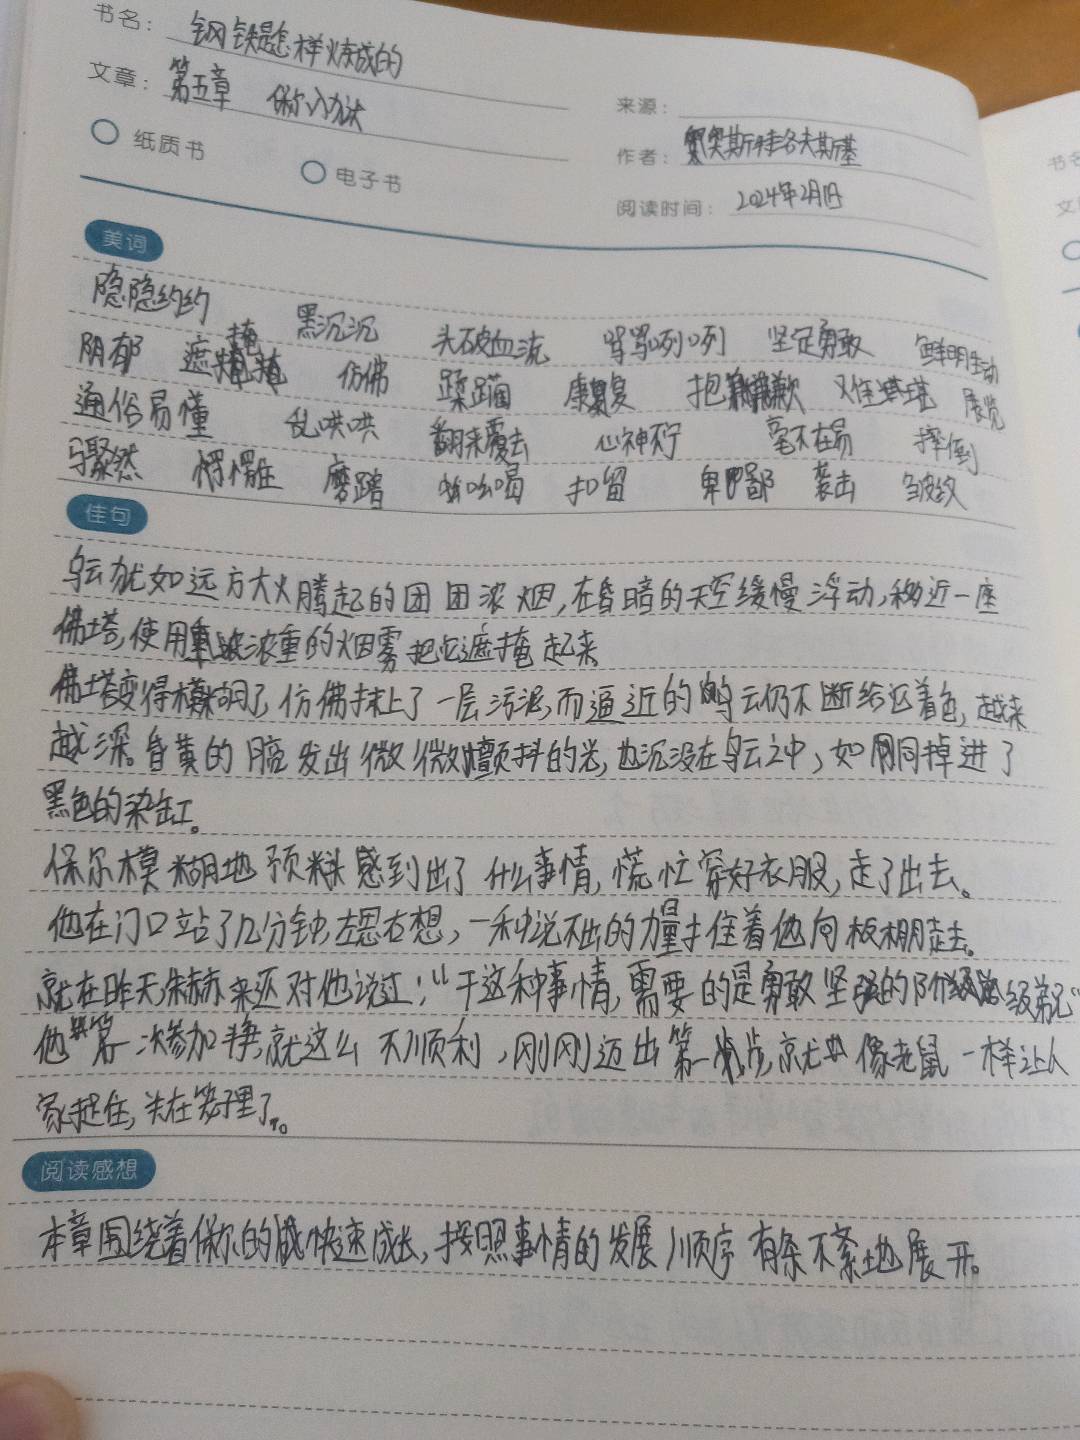 书名：钢铁是怎样炼成的
文章：第五章 保尔入狱
来源：
作者：奥斯特洛夫斯基
纸质书
电子书
阅读时间：2024年2月1日
美词
隐隐约约 黑沉沉 头破血流 骂骂咧咧 坚定勇敢 鲜明生动
阴郁 遮掩 仿佛 蹂躏 康复 抱歉 难堪 展览
通俗易懂 乱哄哄 翻来覆去 心神不宁 毫不在乎 摔倒
骤然 愣愣 磨蹭 吆喝 扣留 卑鄙 袭击 皱纹
佳句
乌云犹如远方大火腾起的团团浓烟,在昏暗的天空缓慢浮动,移近一座
佛塔,使用浓重的烟雾把它遮掩起来
佛塔变得模糊了,仿佛抹上了一层污泥,而逼近的乌云仍不断给它着色,越来
越深。昏黄的 发出微微颤抖的光,也沉没在乌云之中,如同掉进了
黑色的染缸。
保尔模糊地预料感到出了什么事情,慌忙穿好衣服,走了出去。
他在门口站了几分钟,左思右想,一种说不出的力量 着他向板棚走去。
就在昨天,朱赫来还对他说过:“干这种事情,需要的是勇敢坚强的阶级弟兄”
他第一次参加斗争,就这么不顺利,刚刚迈出第一步,就 像老鼠一样让人
家 住,关在笼子里了。
阅读感想
本章围绕着保尔的 快速成长,按照事情的发展顺序有条不紊地展开。